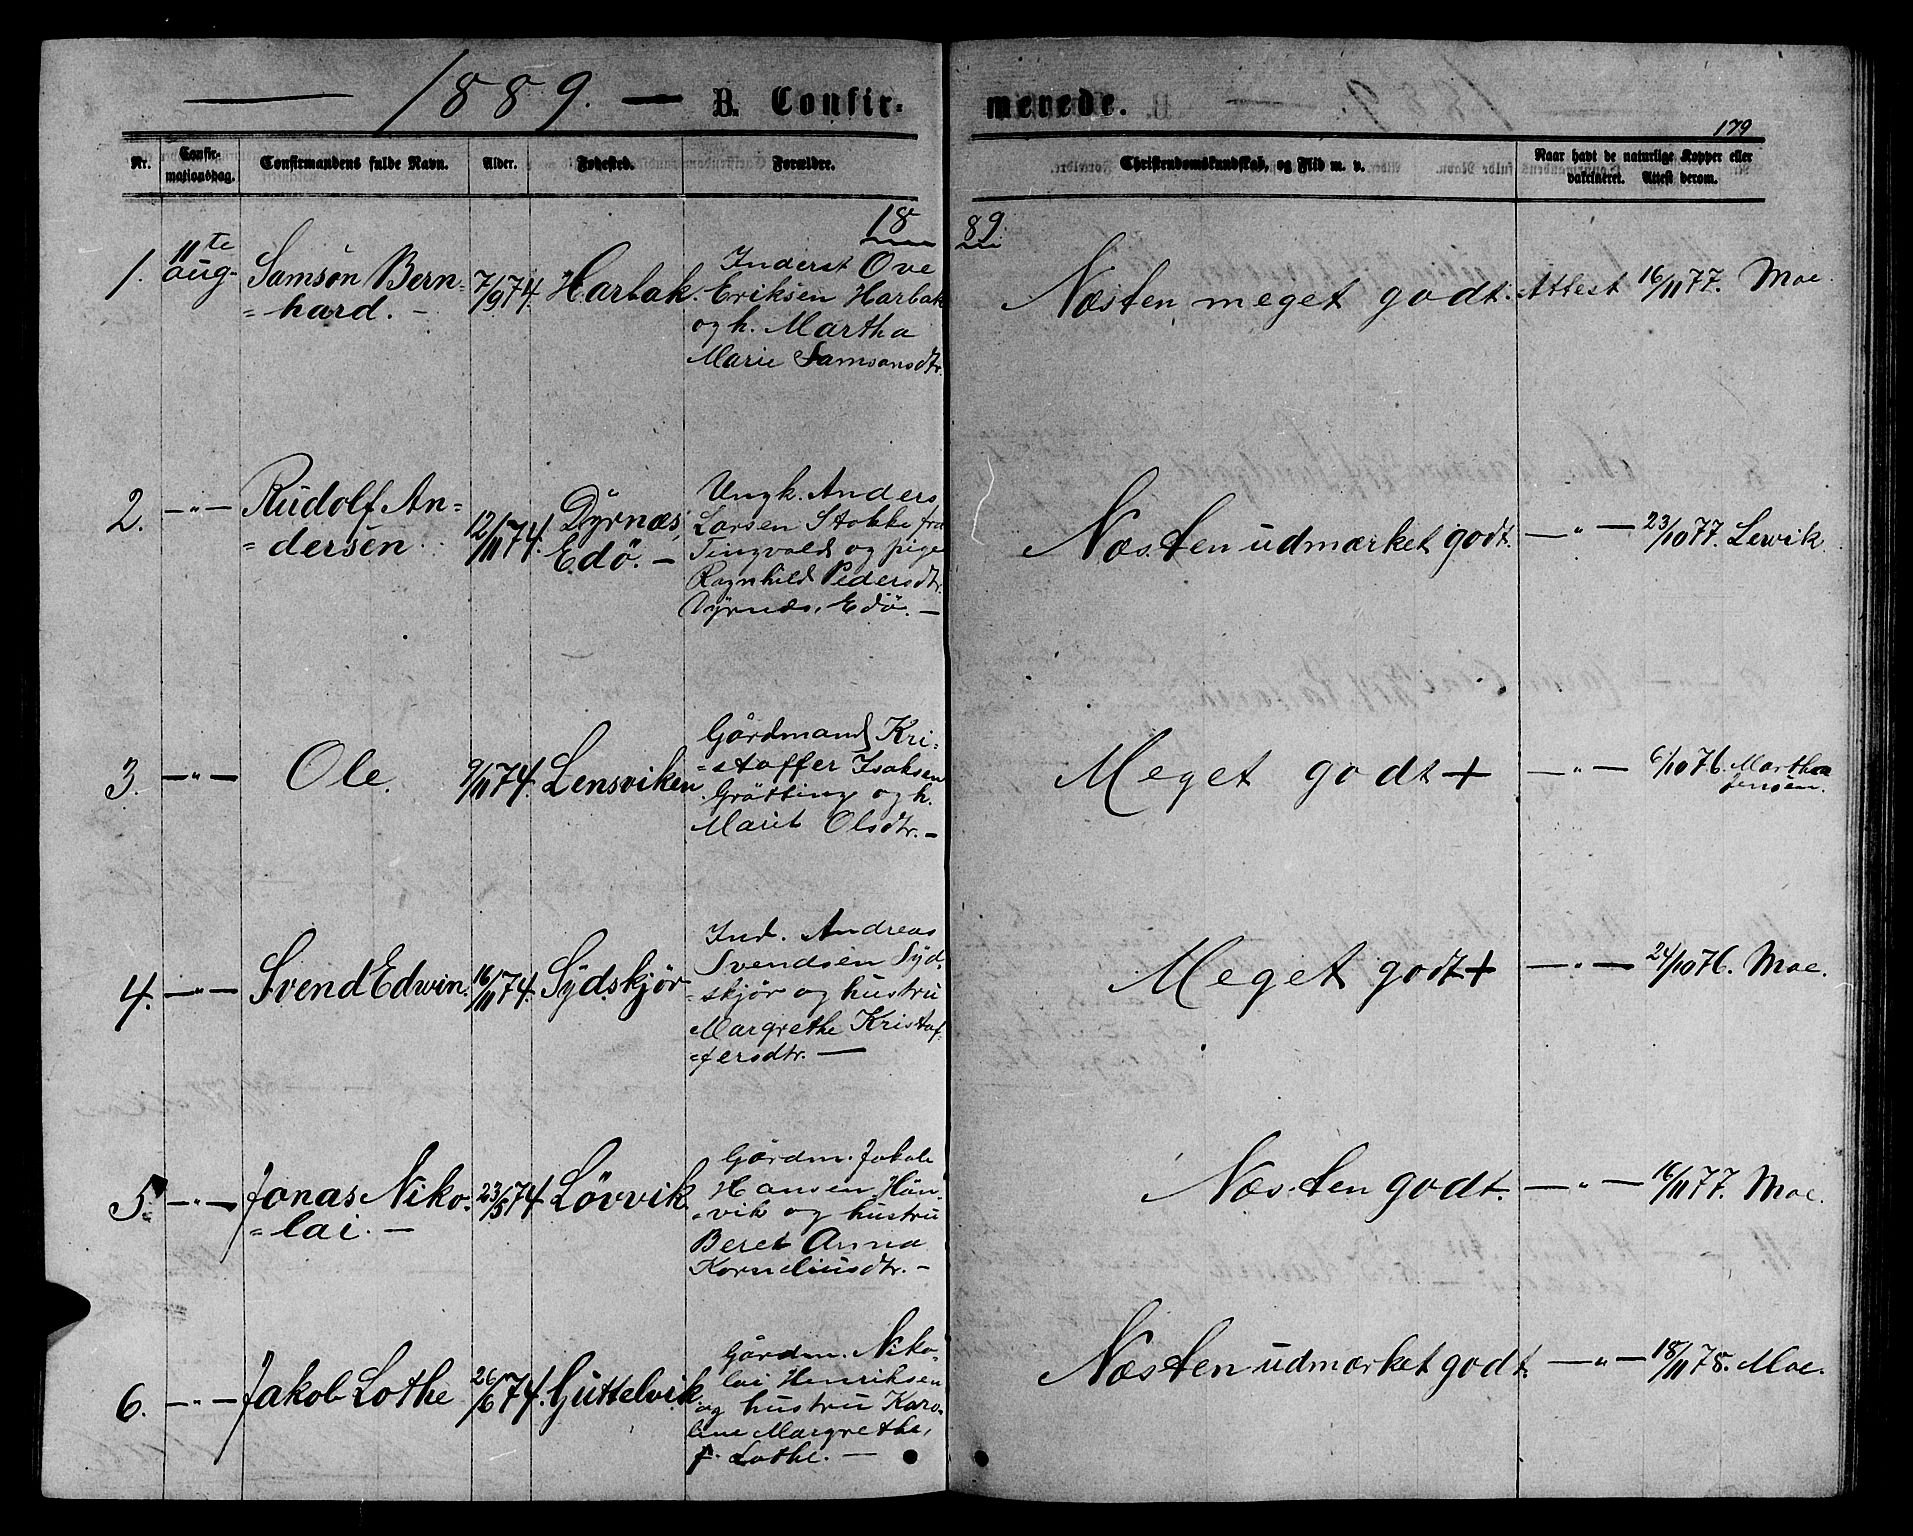 1889. — B. Confir-
merede.
179
Nr.
Confir-
mationsdag.
Confirmandens fulde Navn.
Alder.
Fødested.
Forældre.
Christendomskundskab, og Flid m. v.
Naar havt de naturlige Kopper eller
vakcineret. Attest derom.
18
89
1.
11te
aug-
Samsøn Bern=
=hard. -
7/9 74.
Harbak.
Inderst Ove
Eriksen Harbak
og h. Martha
Marie Samsonsdtr.
Næsten meget godt.
Attest
16/11 77. Moe.
2.
—"—
Rudolf An=
=dersen.
12/11 74.
Dyrnæs,
Edö. -
Ungk. Anders
Larsen Stokke fra
Tingvold og pige
Ragnhild Pedersdtr.
Dyrnæs, Edö. —
Næsten udmærket godt.
—"—
23/10 77. Lervik.
3.
—"—
Ole.
9/11 74.
Lensviken
Gårdmand Kri=
=stoffer Isaksen
Gråtting og h.
Marit Olsdtr. -
Meget godt +
—"—
6/10 76. Martha
Jensen.
4.
—"—
Svend Edwin.
16/11 74.
Sydskjör
Ind. Andreas
Svendsen Syd=
=skjör og hustru
Margrethe Kristof=
=fersdtr. —
Meget godt +
—"—
24/10 76. Moe.
5.
—"—
Jonas Niko=
=lai. -
23/5 74
Lövvik
Gårdm. Jakob
Hansen Hån=
=vik og hustru
Beret Anna
Korneliusdtr. -
Næsten godt.
—"—
16/11 77. Moe.
6.
—"—
Jakob Lothe
26/6 74.
Guttelvik
Gårdm. Niko=
lai Henriksen
og hustru Karo=
line Margrethe,
f. Lothe. —
Næsten udmærket godt.
—"—
18/11 78. Moe.